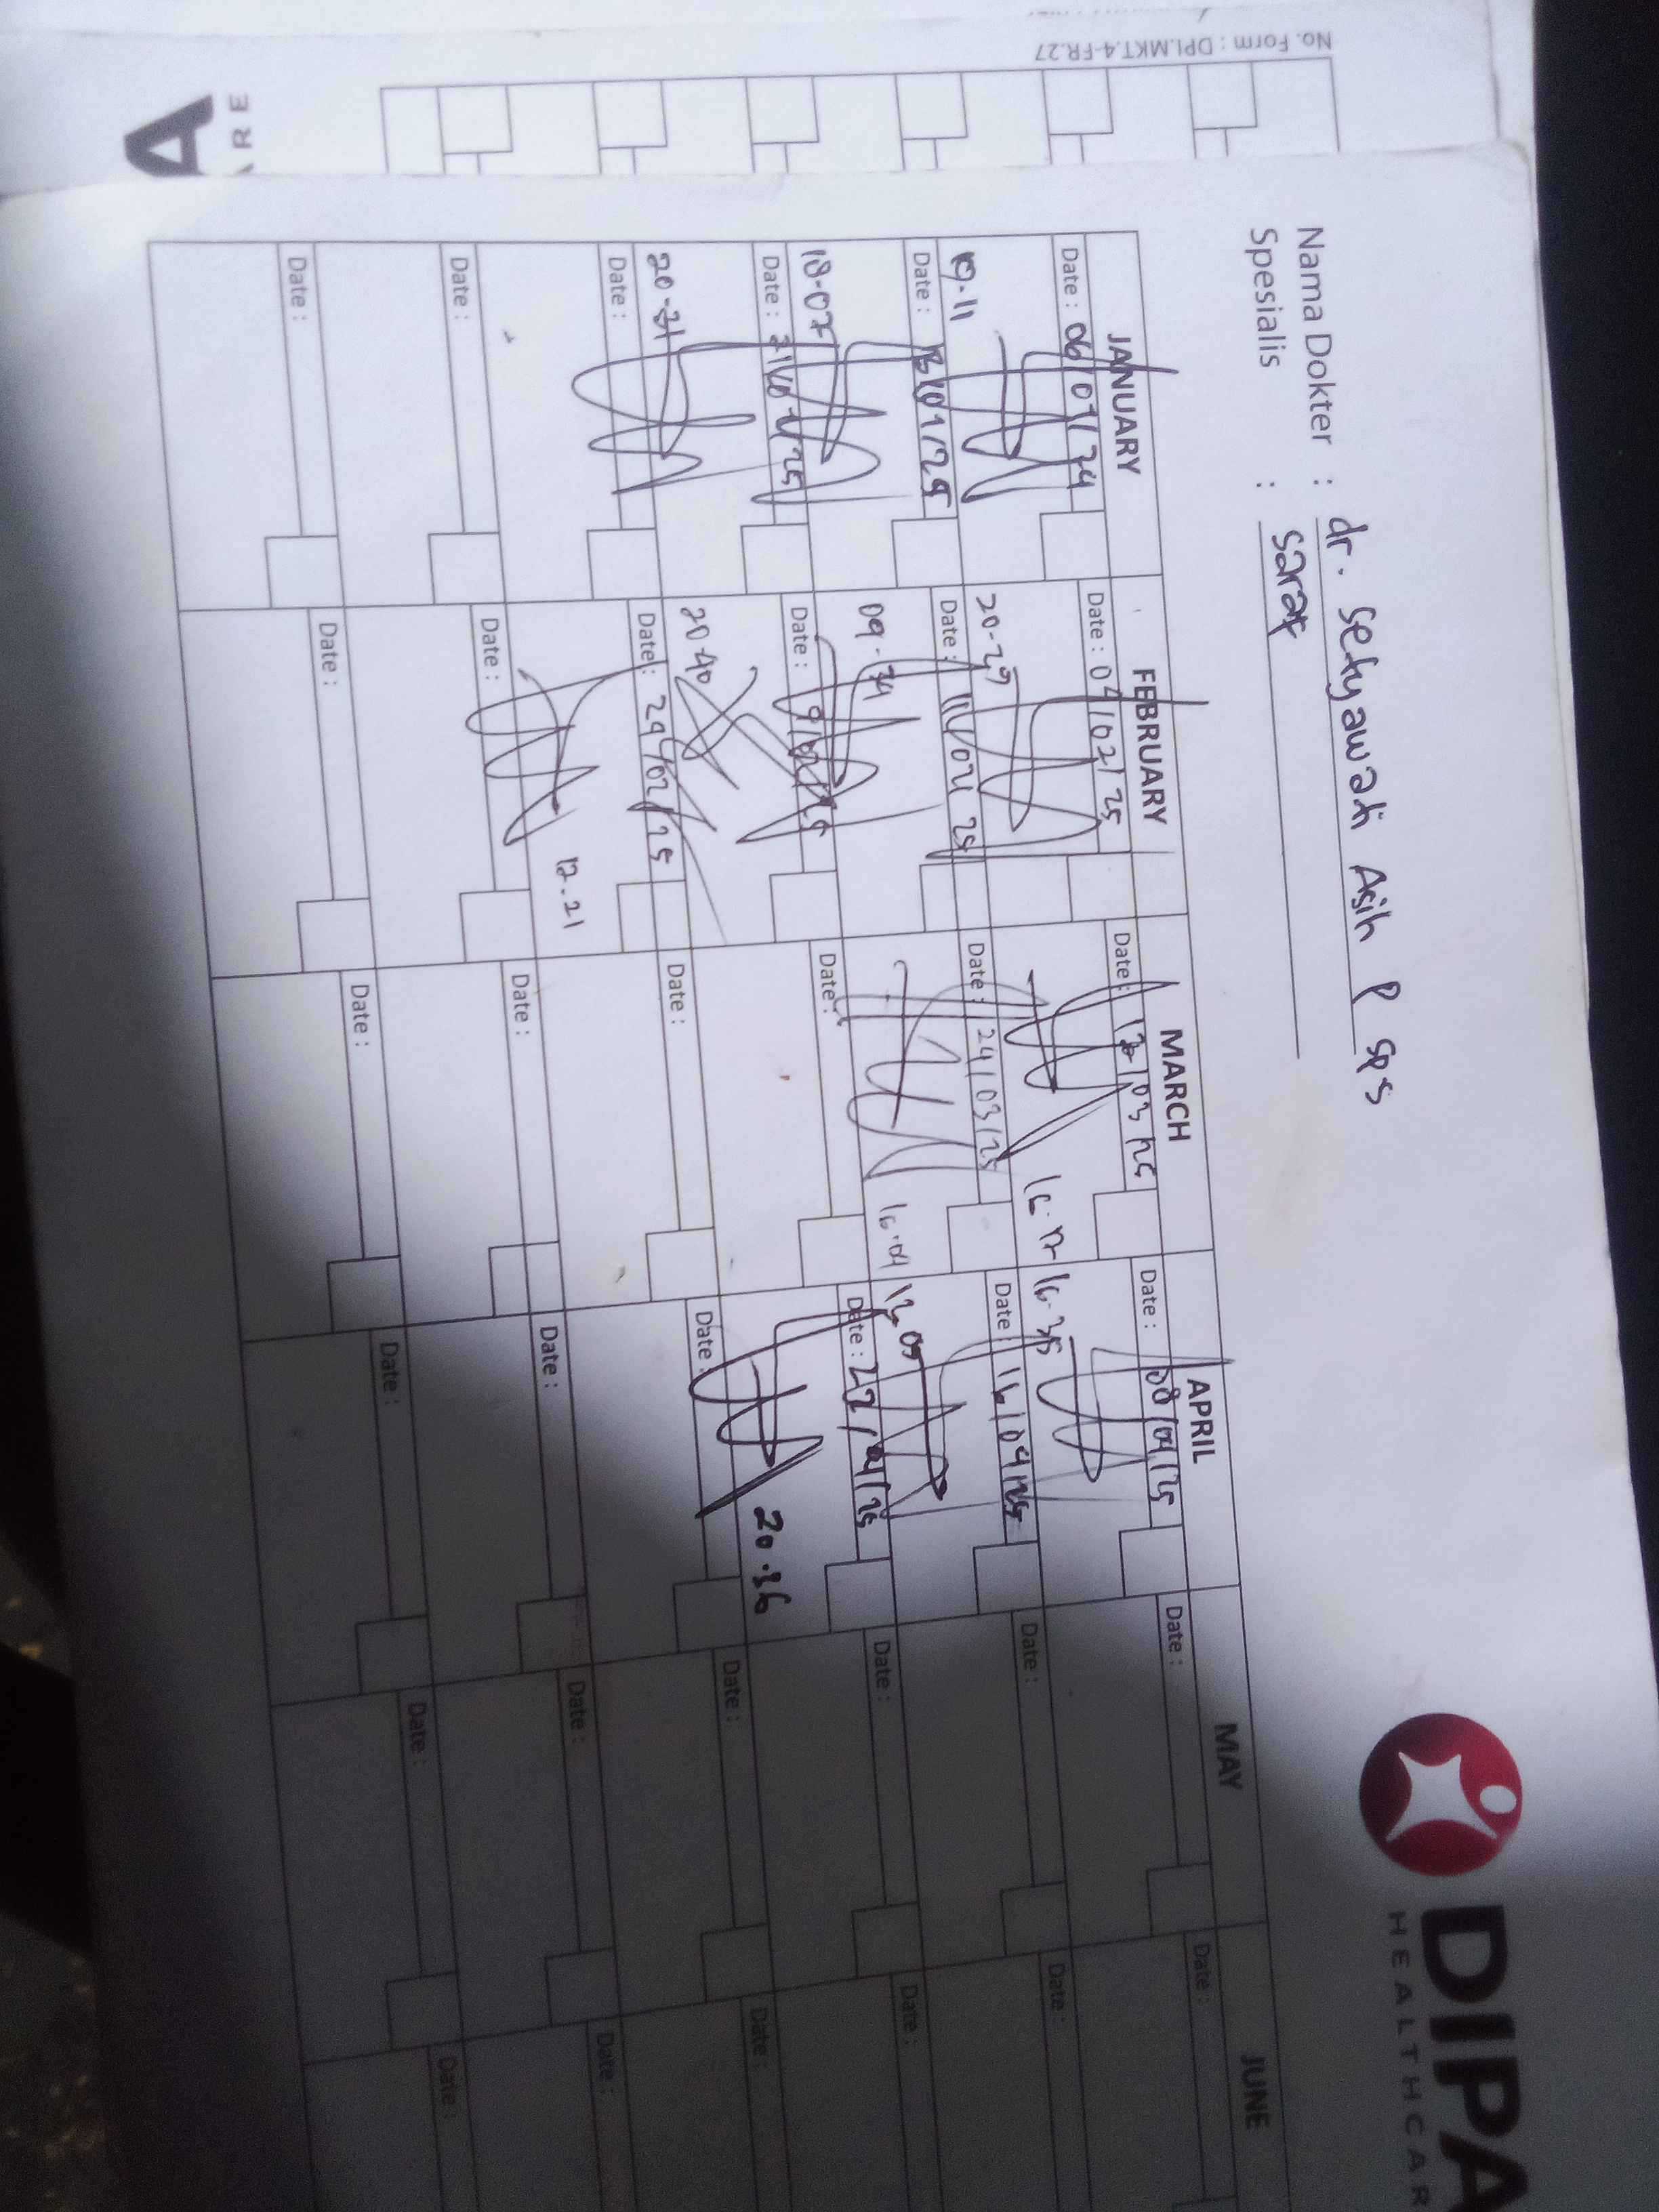 No. Form : DPI.MKT.4-FR.27
A
ARE
DIPA
HEALTHCAR
Nama Dokter : dr. Setyawati Asih P SpS
Spesialis : Saraf
JANUARY FEBRUARY MARCH APRIL MAY JUNE
Date : 06/01/24 Date : 04/02/25 Date : /03/25 Date : 08/04/25 Date : Date :
19.11 20.29 16.17 16.35
Date : 13/01/25 Date : 11/02/25 Date : 24/03/25 Date : 16/04/25 Date : Date :
18.07 09. 16.04 12.09
Date : 21/01/25 Date : Date : Date : 22/04/25 Date : Date :
20.31 20.40 20.36
Date : Date : 29/02/25 Date : Date : Date : Date :
12.21
Date : Date : Date : Date : Date : Date :
Date : Date : Date : Date : Date : Date :